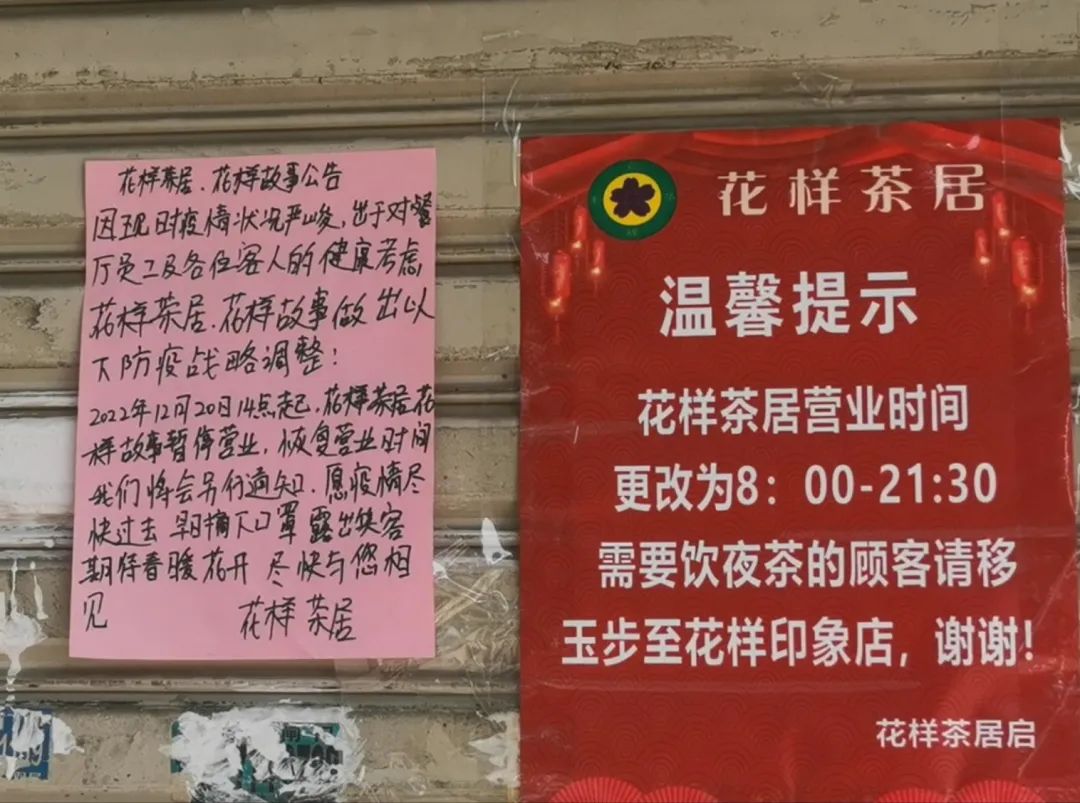 花样茶居.花样故事公告
因现时疫情状况严峻,出于对餐
厅员工及各位客人的健康考虑
花样茶居.花样故事做出以
下防疫战略调整!
2022年12月20日14点起.花样茶居花
样故事暂停营业,恢复营业时间
我们将会另行通知.愿疫情尽
快过去 早日摘下口罩露出笑容
期待春暖花开 尽快与您相
见
花样茶居
花样茶居
温馨提示
花样茶居营业时间
更改为8:00-21:30
需要饮夜茶的顾客请移
玉步至花样印象店,谢谢!
花样茶居启